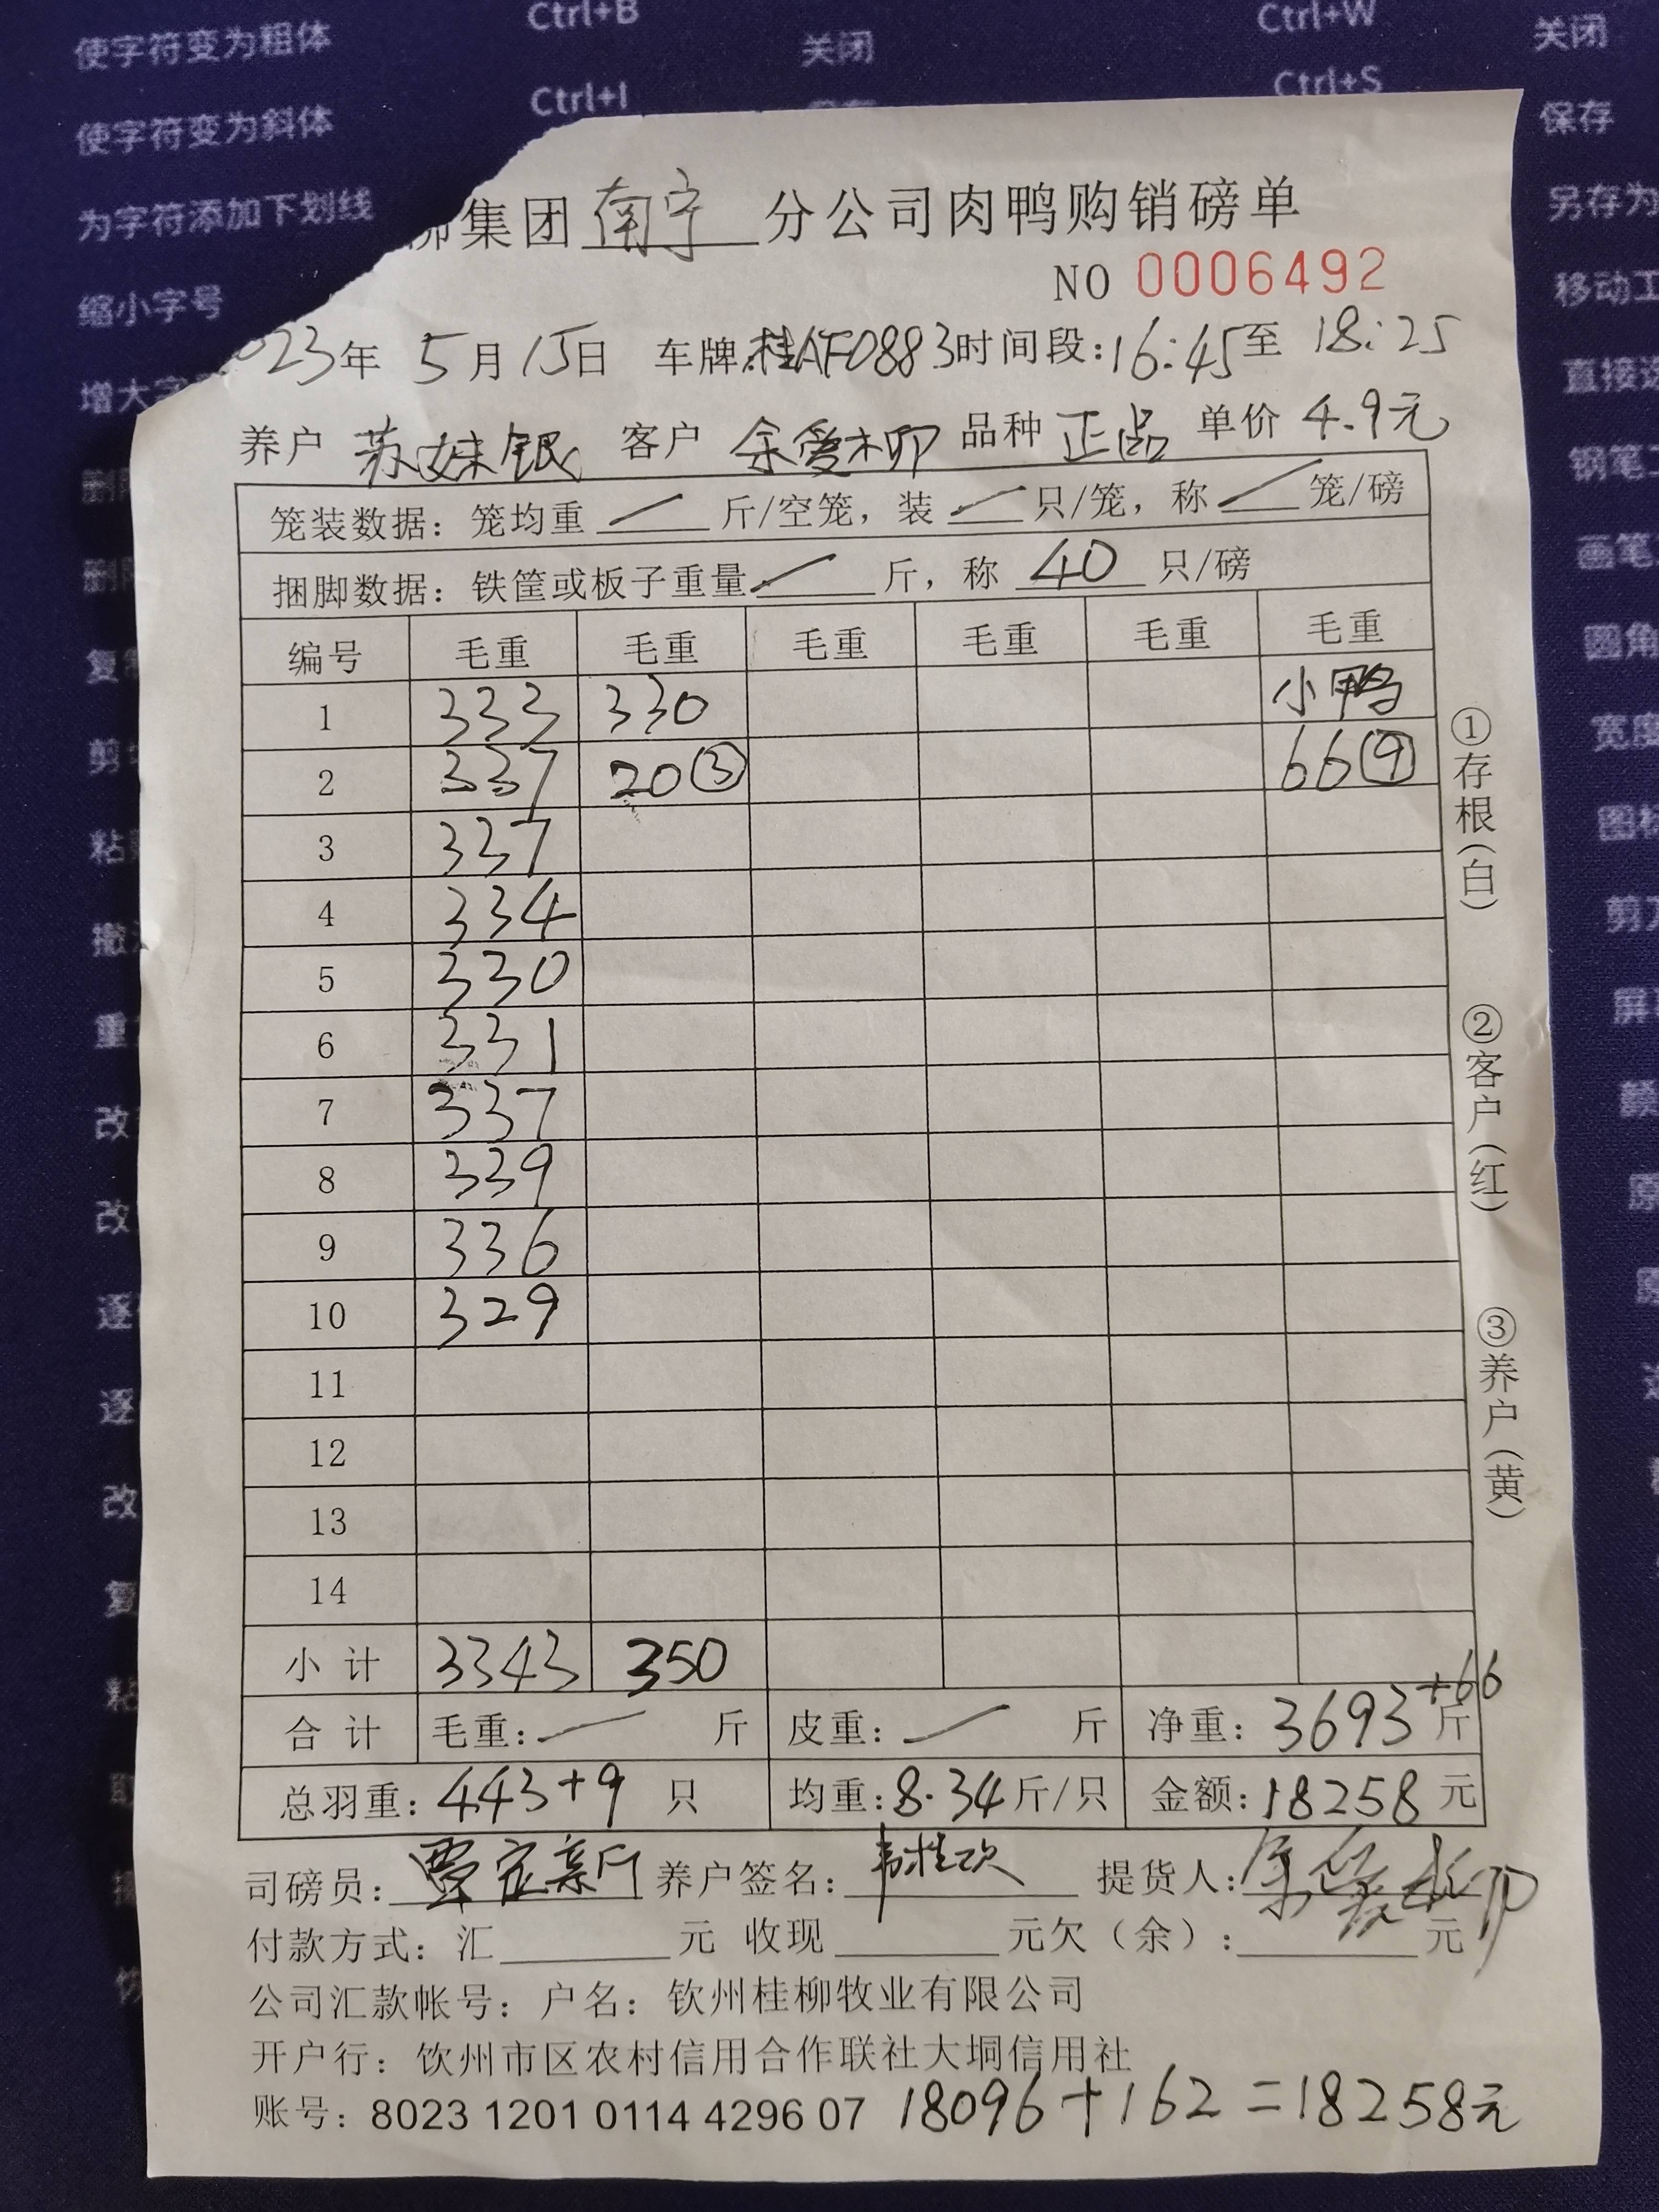 使字符变为粗体 Ctrl+B 关闭 Ctrl+W 关闭
使字符变为斜体 Ctrl+I Ctrl+S 保存
为字符添加下划线 另存为
缩小字号
集团 南宁 分公司肉鸭购销磅单
NO 0006492
23年 5月15日 车牌:桂AF0883 时间段:16:45至 18:25
养户 苏妹银 客户 余爱柳 品种 正品 单价 4.9元
笼装数据: 笼均重 / 斤/空笼, 装 / 只/笼, 称 / 笼/磅
捆脚数据: 铁筐或板子重量 / 斤, 称 40 只/磅
编号 毛重 毛重 毛重 毛重 毛重 毛重
1 333 330 小鸭
2 337 20③ 66⑨
3 337
4 334
5 330
6 331
7 337
8 339
9 336
10 329
11
12
13
14
小计 3343 350
合计 毛重: / 斤 皮重: / 斤 净重: 3693+66 斤
总羽重: 443+9 只 均重: 8.34 斤/只 金额: 18258 元
司磅员: 养户签名: 提货人: 余爱柳
付款方式: 汇 元 收现 元欠(余): 元
公司汇款帐号: 户名: 钦州桂柳牧业有限公司
开户行: 钦州市区农村信用合作联社大垌信用社
账号: 8023 1201 0114 4296 07 18096+162=18258元
①存根(白)
②客户(红)
③养户(黄)